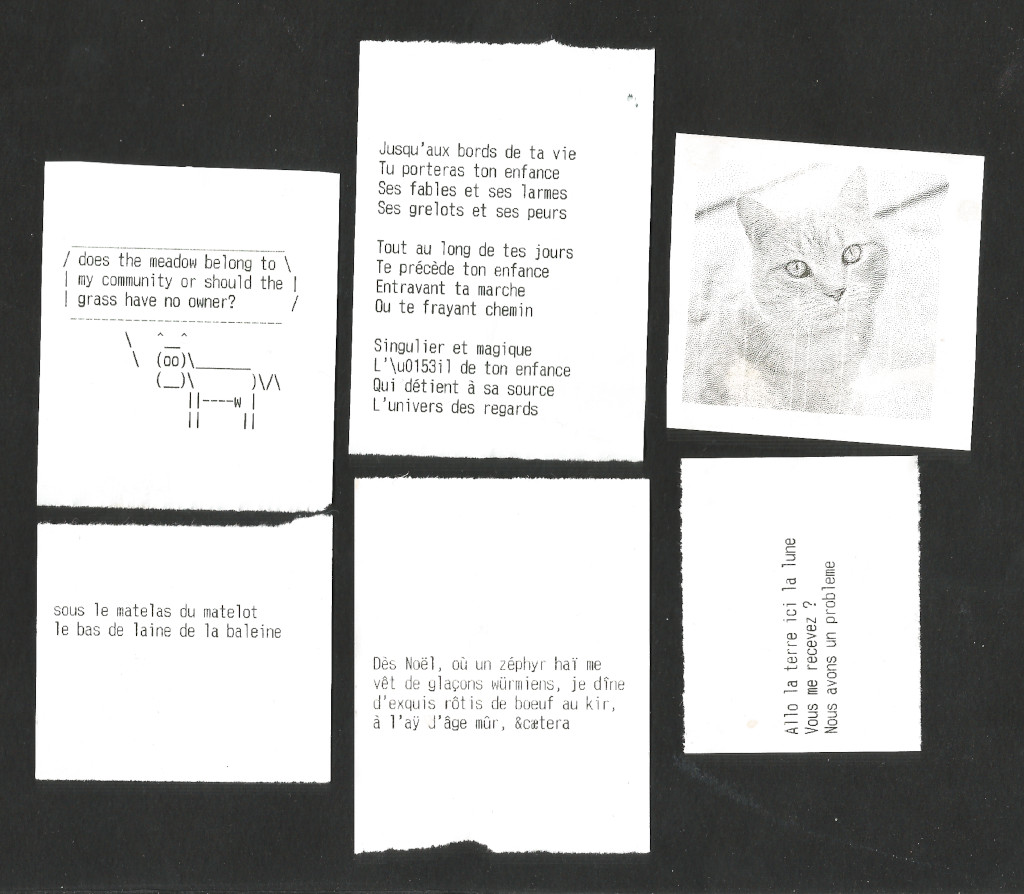 / does the meadow belong to \
| my community or should the |
| grass have no owner? /
\ ^__^
\ (oo)\_______
(__)\ )\/\
||----w |
|| ||
sous le matelas du matelot
le bas de laine de la baleine
Jusqu'aux bords de ta vie
Tu porteras ton enfance
Ses fables et ses larmes
Ses grelots et ses peurs
Tout au long de tes jours
Te précède ton enfance
Entravant ta marche
Ou te frayant chemin
Singulier et magique
L'\u0153il de ton enfance
Qui détient à sa source
L'univers des regards
Dès Noël, où un zéphyr haï me
vêt de glaçons würmiens, je dîne
d'exquis rôtis de boeuf au kir,
à l'aÿ d'âge mûr, &cætera
Allo la terre ici la lune
Vous me recevez ?
Nous avons un probleme